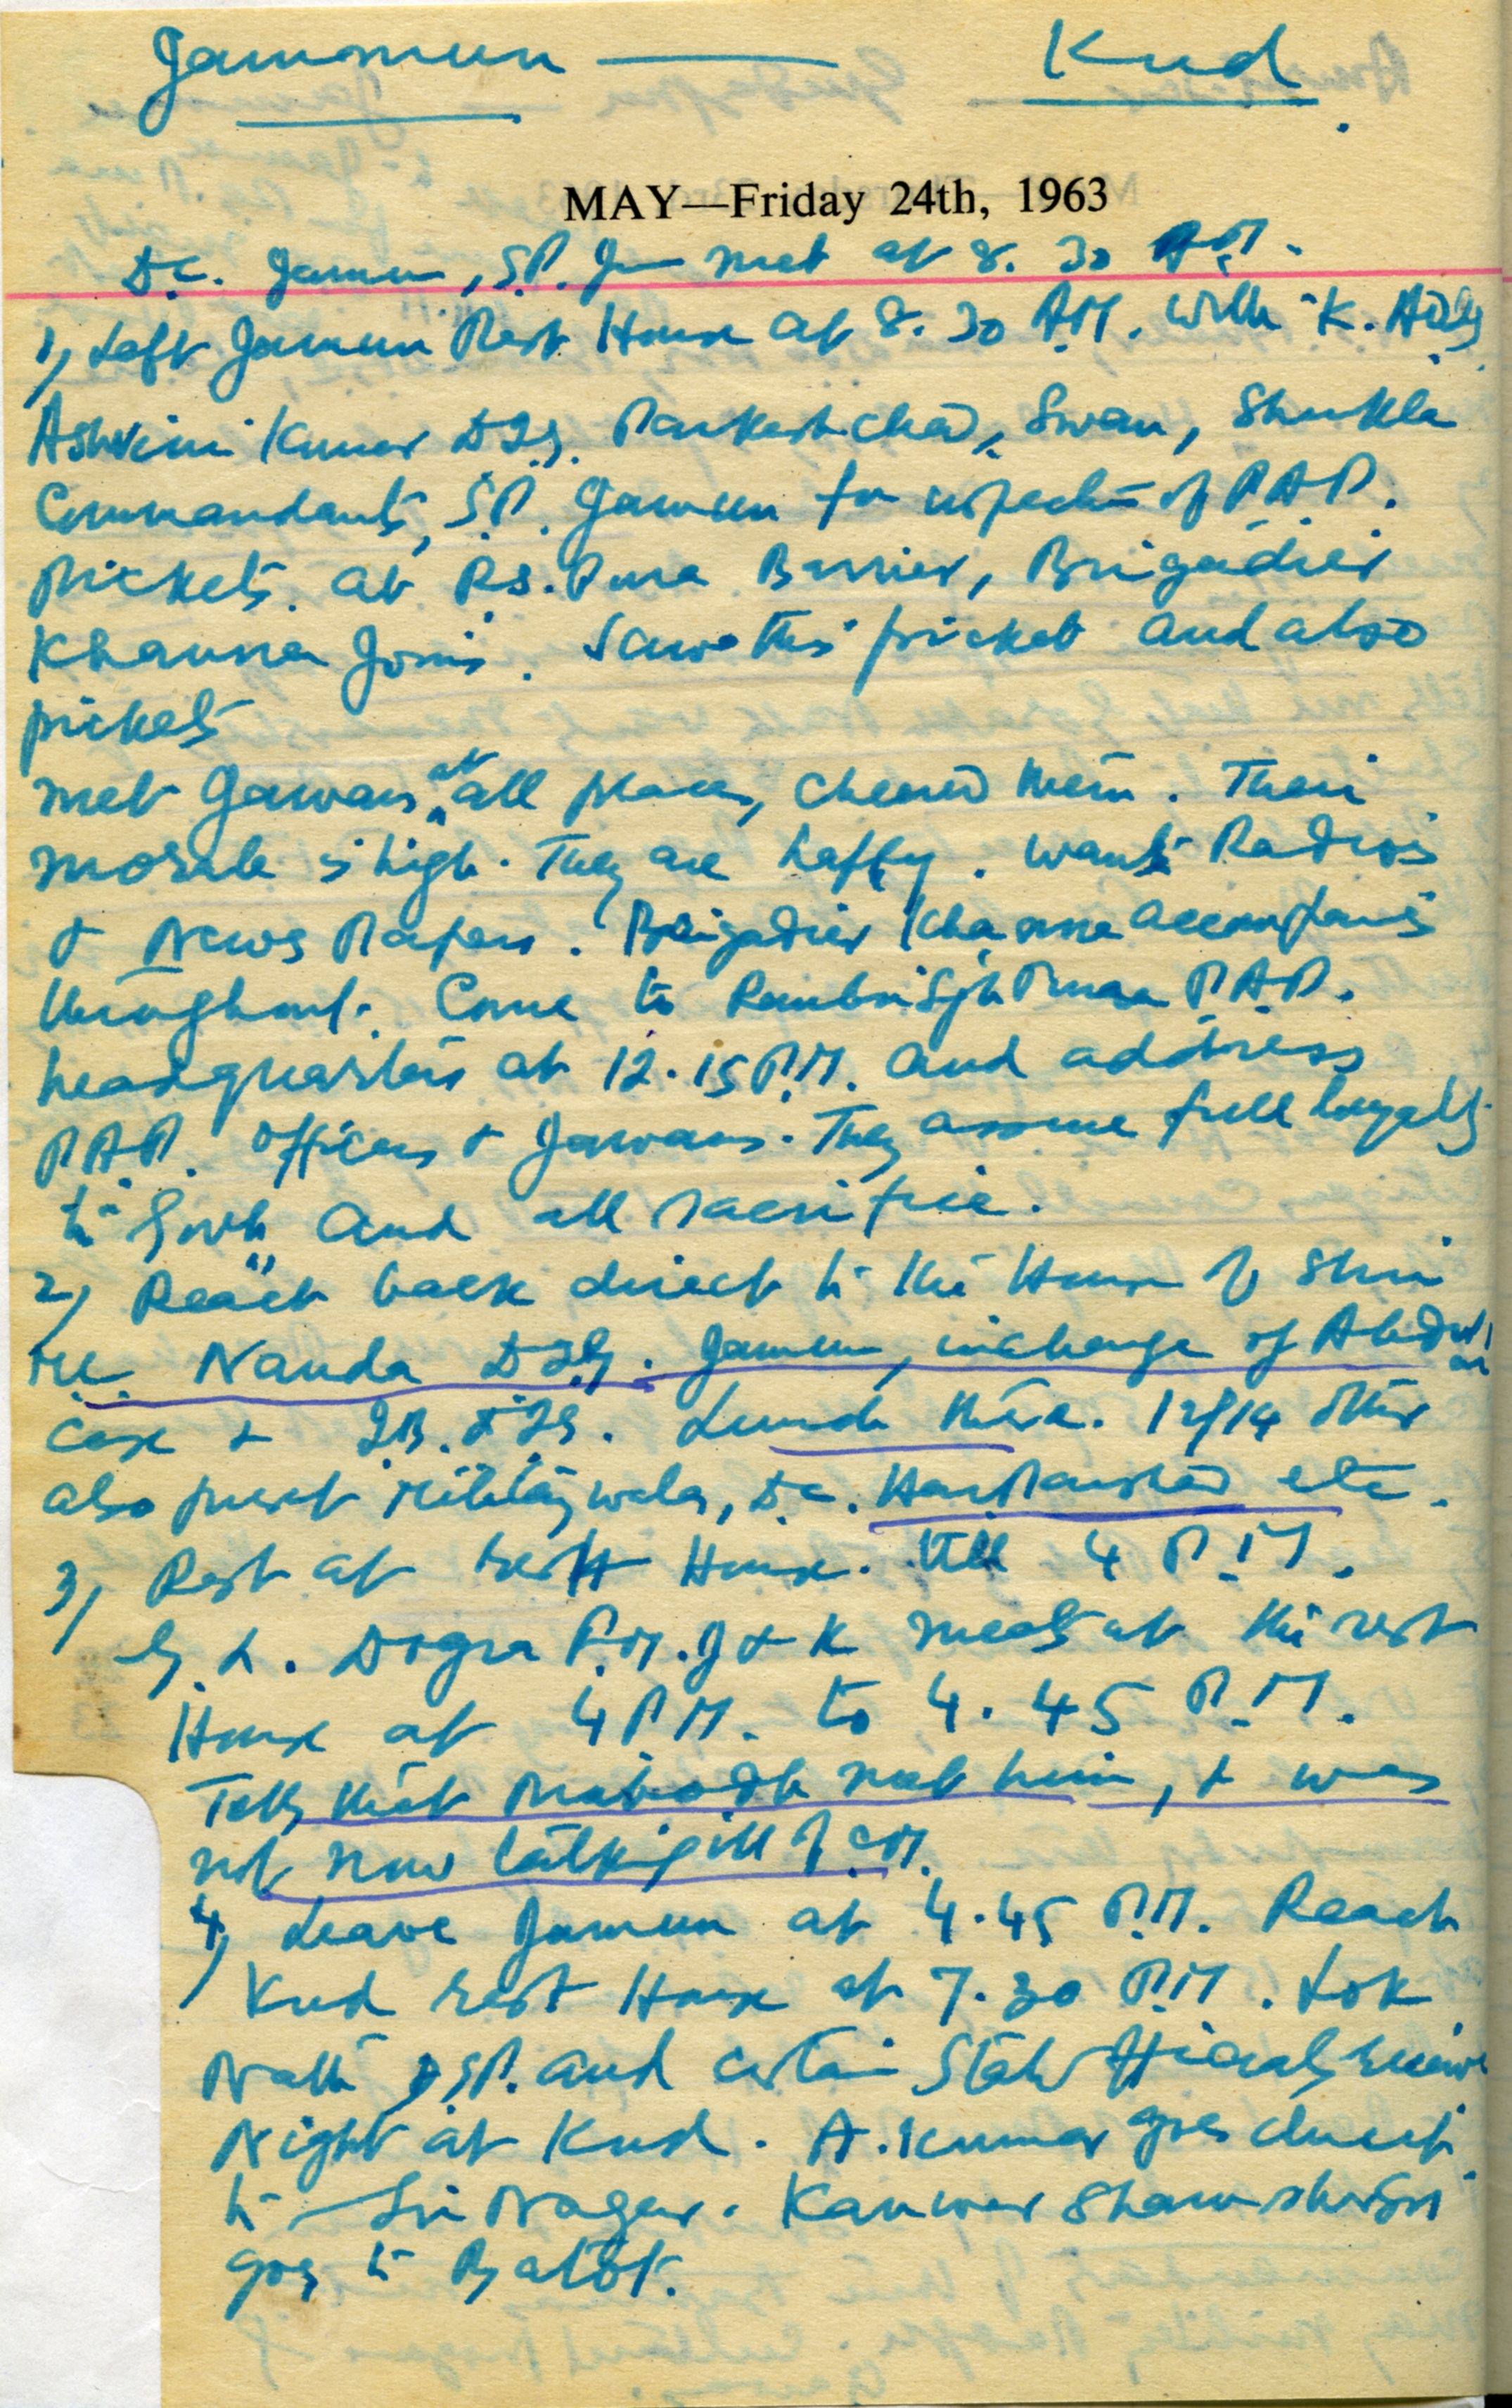 Jammun — Kud
MAY—Friday 24th, 1963
D.C. Jammun, S.P. Jmu met at 8.30 A.M.
1, Left Jammun Rest House at 8.30 A.M. with K.
Ashvini Kumar DIG. Swan, Shukla
Commandants, S.P. Jammun for inspection of P.A.P.
Pickets. at R.S. Pura Barrier, Brigadier
Khanna Joins. Saw this picket and also
pickets
met Jawans at all places, cheered them. Their
morale is high. They are happy. want Radios
& News Papers. Brigadier Khanna accompanies
throughout. Come to Ranbir Sgh Pura P.A.P.
headquarters at 12.15 P.M. and address
P.A.P. officers & Jawans. They assure full loyalty
to Govt. and all sacrifice.
2, Reach back direct to the House of Shri
Nanda DIG. Jammun, incharge of
case & I.B. DIG. Lunch there. 12/14 other
also present Military walas, D.C. etc.
3, Rest at Rest House. till 4 P.M.
G.L. Dogra F.M. J & K meets at the rest
House at 4 P.M. to 4.45 P.M.
Tells that Prabodh met him, & was
not now talking ill of C.M.
4, Leave Jammun at 4.45 P.M. Reach
Kud rest House at 7.30 P.M. Lok
Nath D.S.P. and certain State officials receive
Night at Kud. A. Kumar goes direct
to — Sri Nagar. Kanwar Shamsher Sgh
goes to Batot.